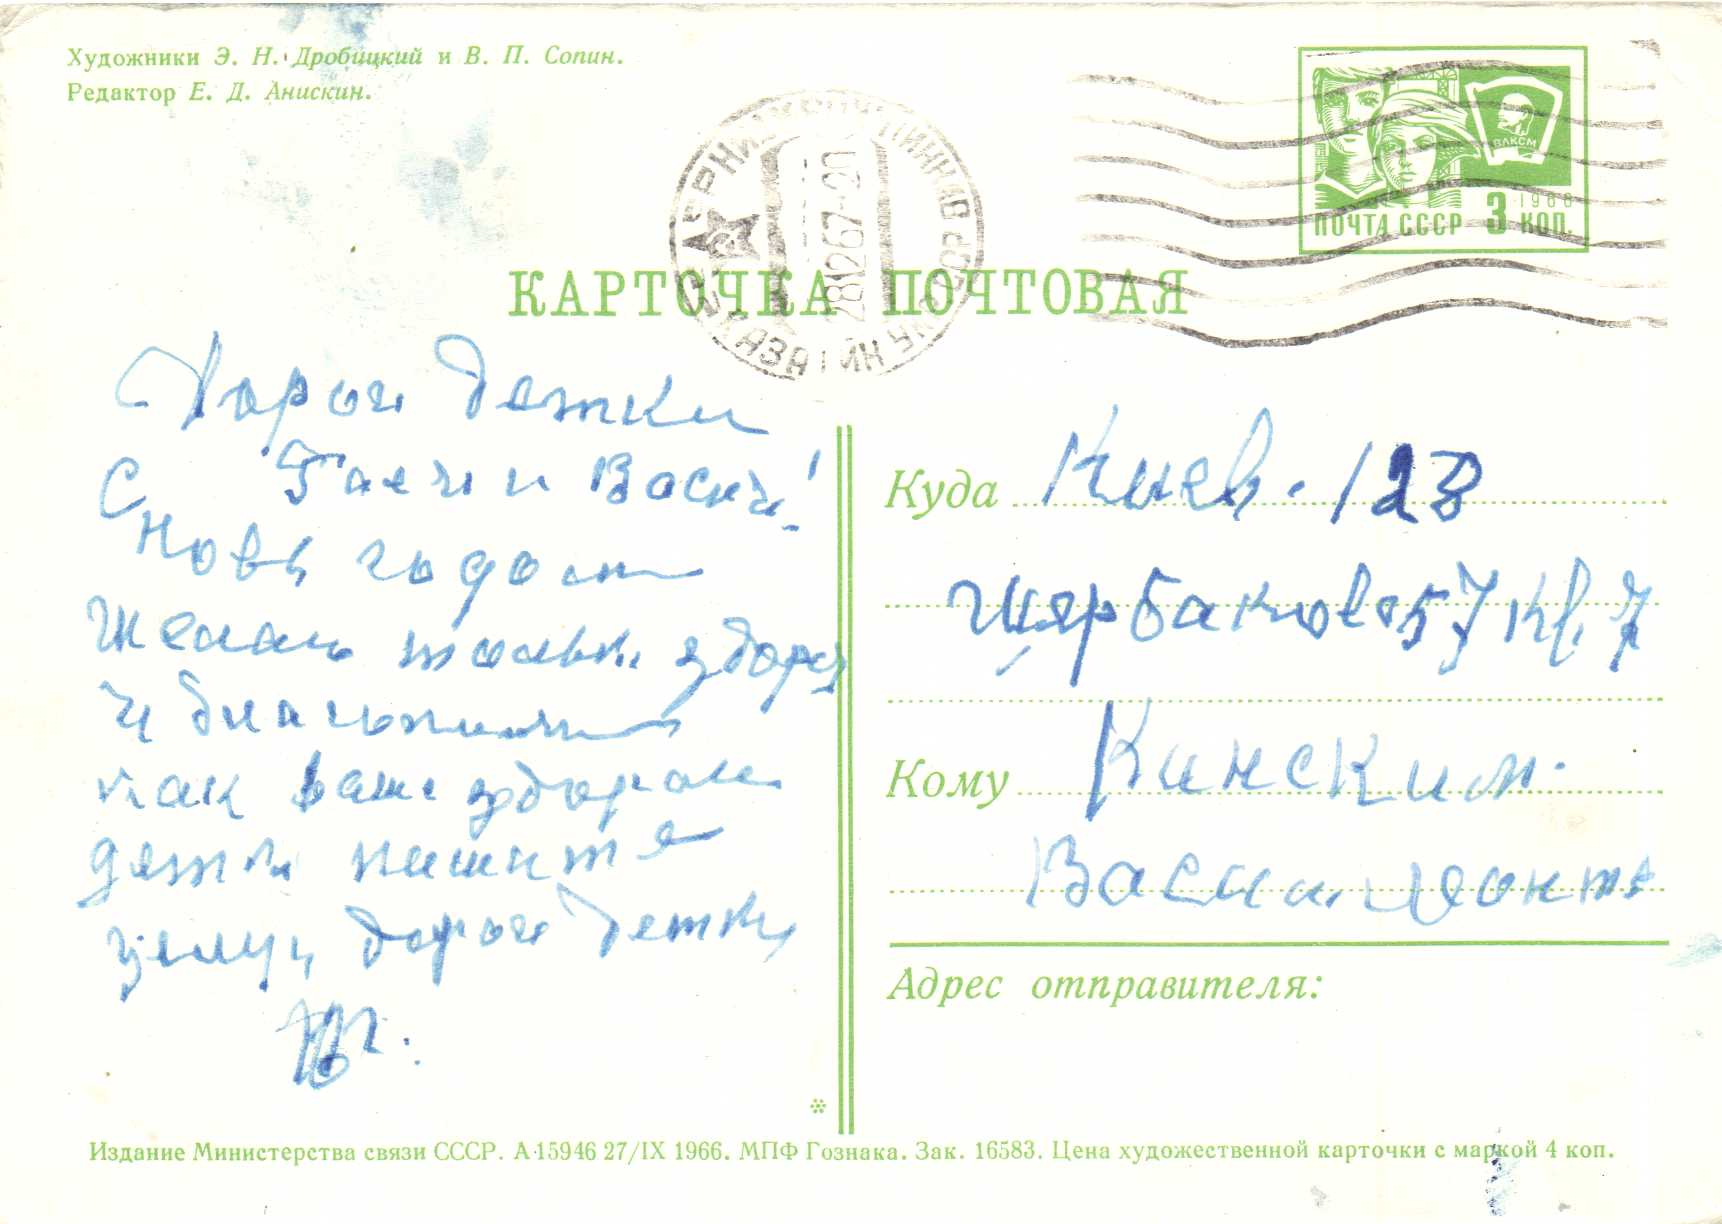 Художники Э. Н. Дробицкий и В. П. Сопин.
Редактор Е. Д. Анискин.
ВЛКСМ
1966
ПОЧТА СССР 3 КОП.
281267-20
КАРТОЧКА ПОЧТОВАЯ
Дороги детки
Гаечи и Васич!
С Новы годом
Желаю только здоров
и благополучия
как ваше здоровя
дятки пишитя
целую дороги детки
Куда Киев. 123
Щярбаково 57 кв. 7
Кому Кинским.
Васи
Адрес отправителя:
*
Издание Министерства связи СССР. А-15946 27/IX 1966. МПФ Гознака. Зак. 16583. Цена художественной карточки с маркой 4 коп.